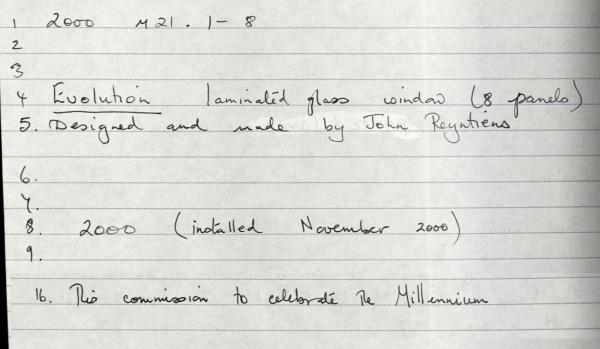 1 2000 M21.1-8
2
3
4 Evolution laminated glass window (8 panels)
5. Designed and made by John Reyntiens
6.
7.
8. 2000 (installed November 2000)
9.
16. This commission to celebrate the Millennium